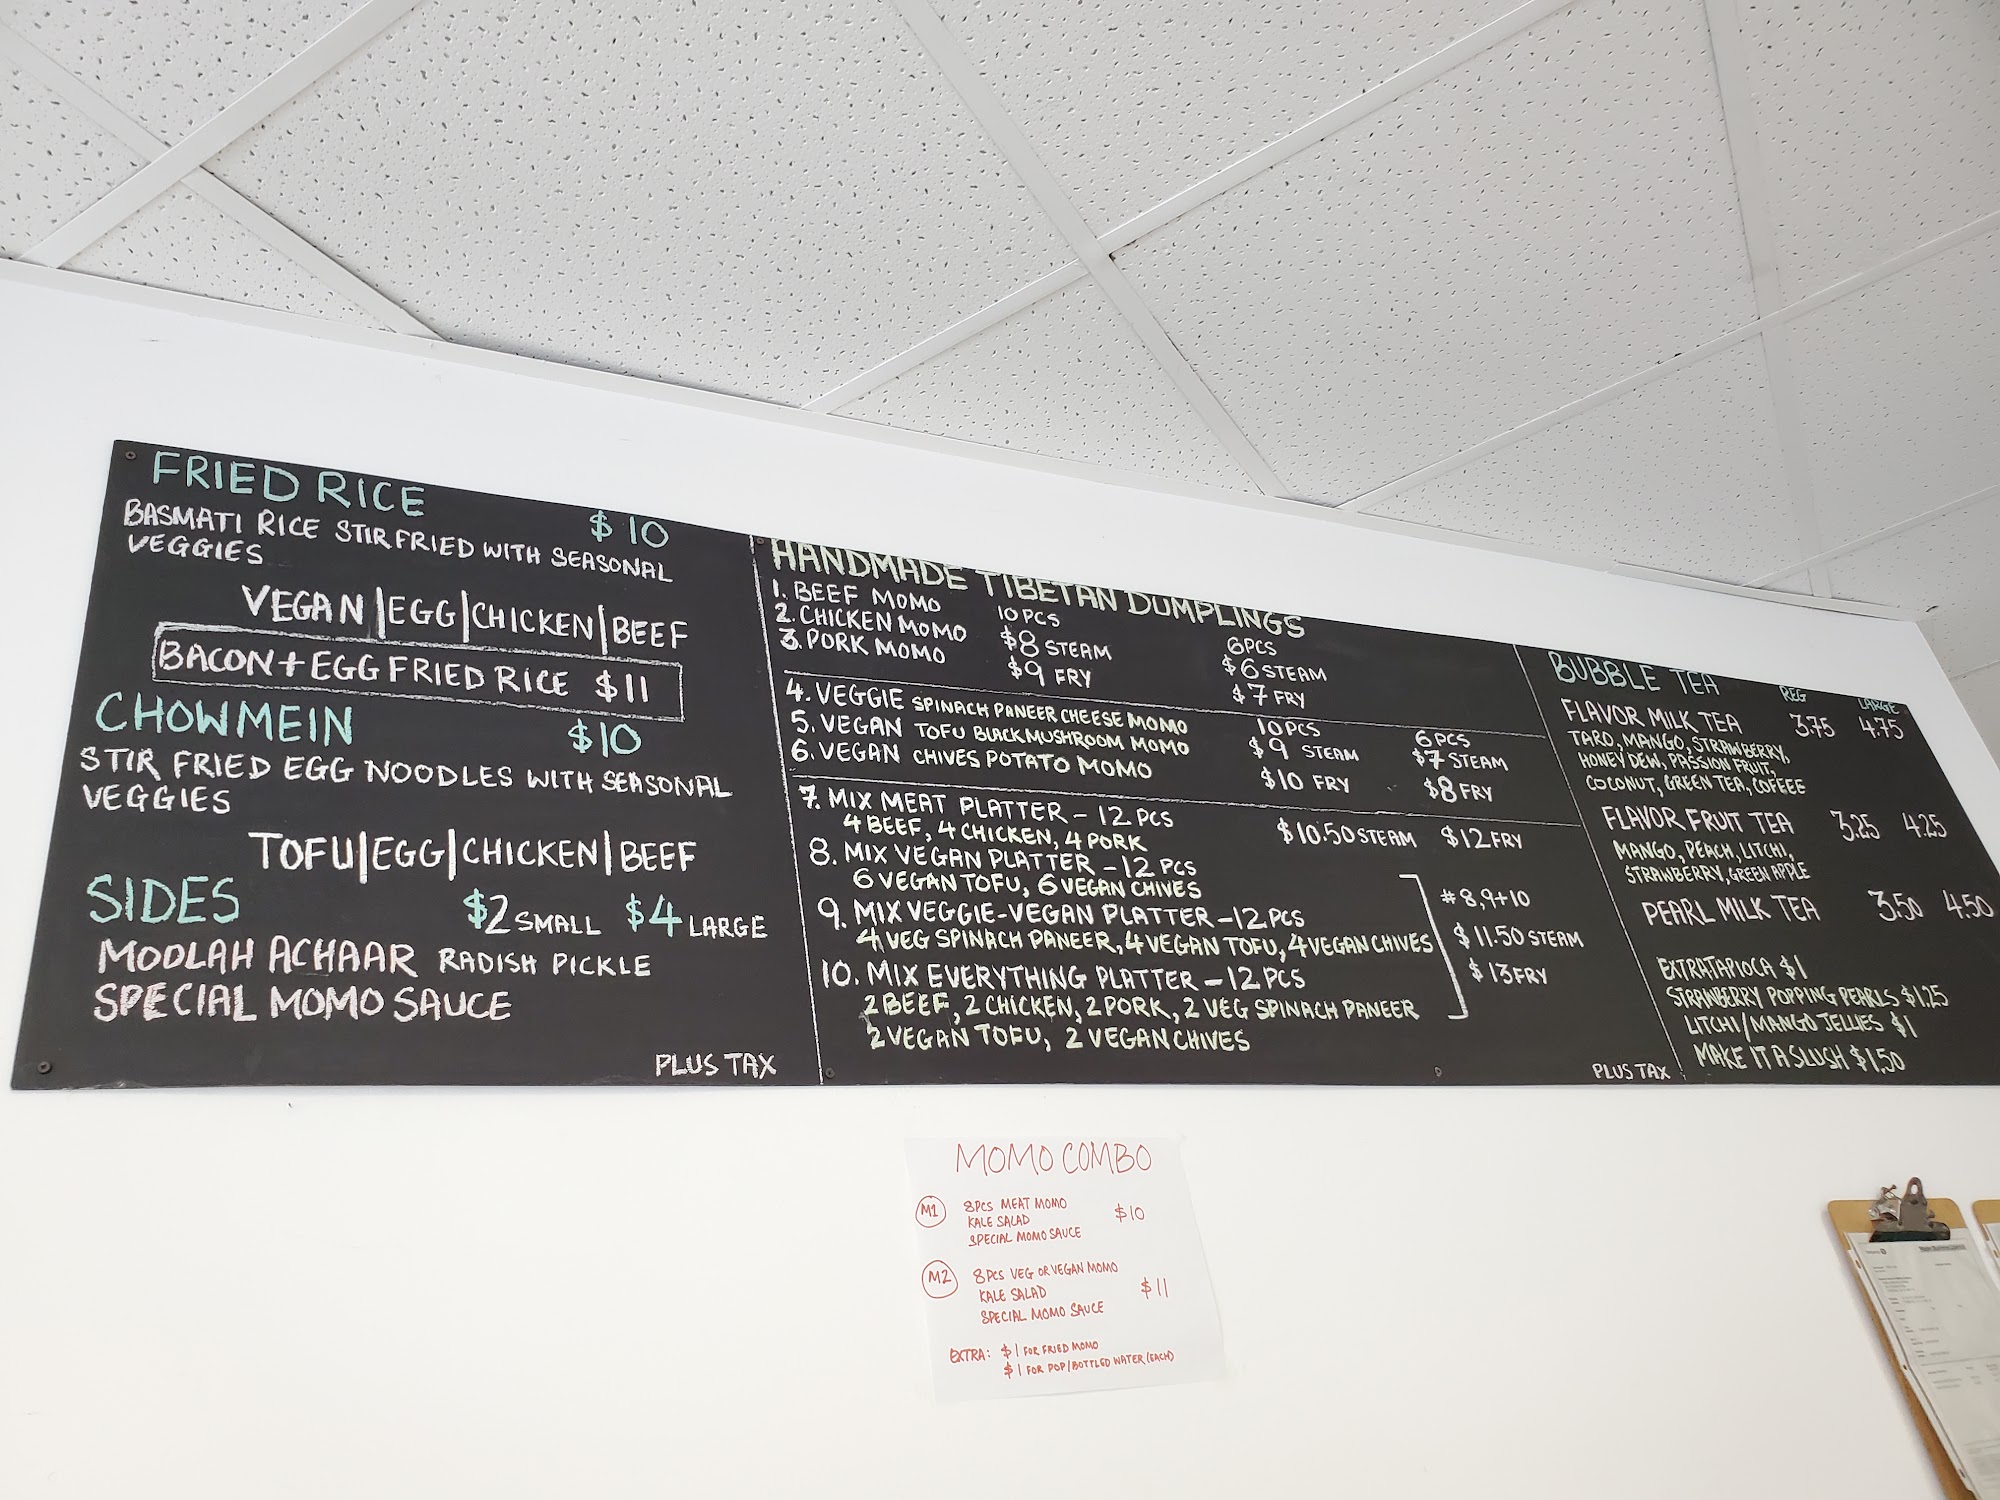 FRIED RICE $10
BASMATI RICE STIR FRIED WITH SEASONAL
VEGGIES
VEGAN | EGG | CHICKEN | BEEF
BACON + EGG FRIED RICE $11
CHOWMEIN $10
STIR FRIED EGG NOODLES WITH SEASONAL
VEGGIES
TOFU | EGG | CHICKEN | BEEF
SIDES $2 SMALL $4 LARGE
MOOLAH ACHAAR RADISH PICKLE
SPECIAL MOMO SAUCE
PLUS TAX
HANDMADE TIBETAN DUMPLINGS
1. BEEF MOMO 10 PCS 6 PCS
2. CHICKEN MOMO $8 STEAM $6 STEAM
3. PORK MOMO $9 FRY $7 FRY
4. VEGGIE SPINACH PANEER CHEESE MOMO 10 PCS 6 PCS
5. VEGAN TOFU BLACK MUSHROOM MOMO $9 STEAM $7 STEAM
6. VEGAN CHIVES POTATO MOMO $10 FRY $8 FRY
7. MIX MEAT PLATTER - 12 PCS $10.50 STEAM $12 FRY
4 BEEF, 4 CHICKEN, 4 PORK
8. MIX VEGAN PLATTER - 12 PCS
6 VEGAN TOFU, 6 VEGAN CHIVES
9. MIX VEGGIE-VEGAN PLATTER - 12 PCS
4 VEG SPINACH PANEER, 4 VEGAN TOFU, 4 VEGAN CHIVES
10. MIX EVERYTHING PLATTER - 12 PCS
2 BEEF, 2 CHICKEN, 2 PORK, 2 VEG SPINACH PANEER
2 VEGAN TOFU, 2 VEGAN CHIVES
# 8, 9 + 10
$11.50 STEAM
$13 FRY
PLUS TAX
BUBBLE TEA REG LARGE
FLAVOR MILK TEA 3.75 4.75
TARO, MANGO, STRAWBERRY,
HONEY DEW, PASSION FRUIT,
COCONUT, GREEN TEA, COFEEE
FLAVOR FRUIT TEA 3.25 4.25
MANGO, PEACH, LITCHI,
STRAWBERRY, GREEN APPLE
PEARL MILK TEA 3.50 4.50
EXTRA TAPIOCA $1
STRAWBERRY POPPING PEARLS $1.25
LITCHI/MANGO JELLIES $1
MAKE IT A SLUSH $1.50
MOMO COMBO
M1 8PCS MEAT MOMO $10
KALE SALAD
SPECIAL MOMO SAUCE
M2 8PCS VEG OR VEGAN MOMO $11
KALE SALAD
SPECIAL MOMO SAUCE
EXTRA: $1 FOR FRIED MOMO
$1 FOR POP/BOTTLED WATER (EACH)